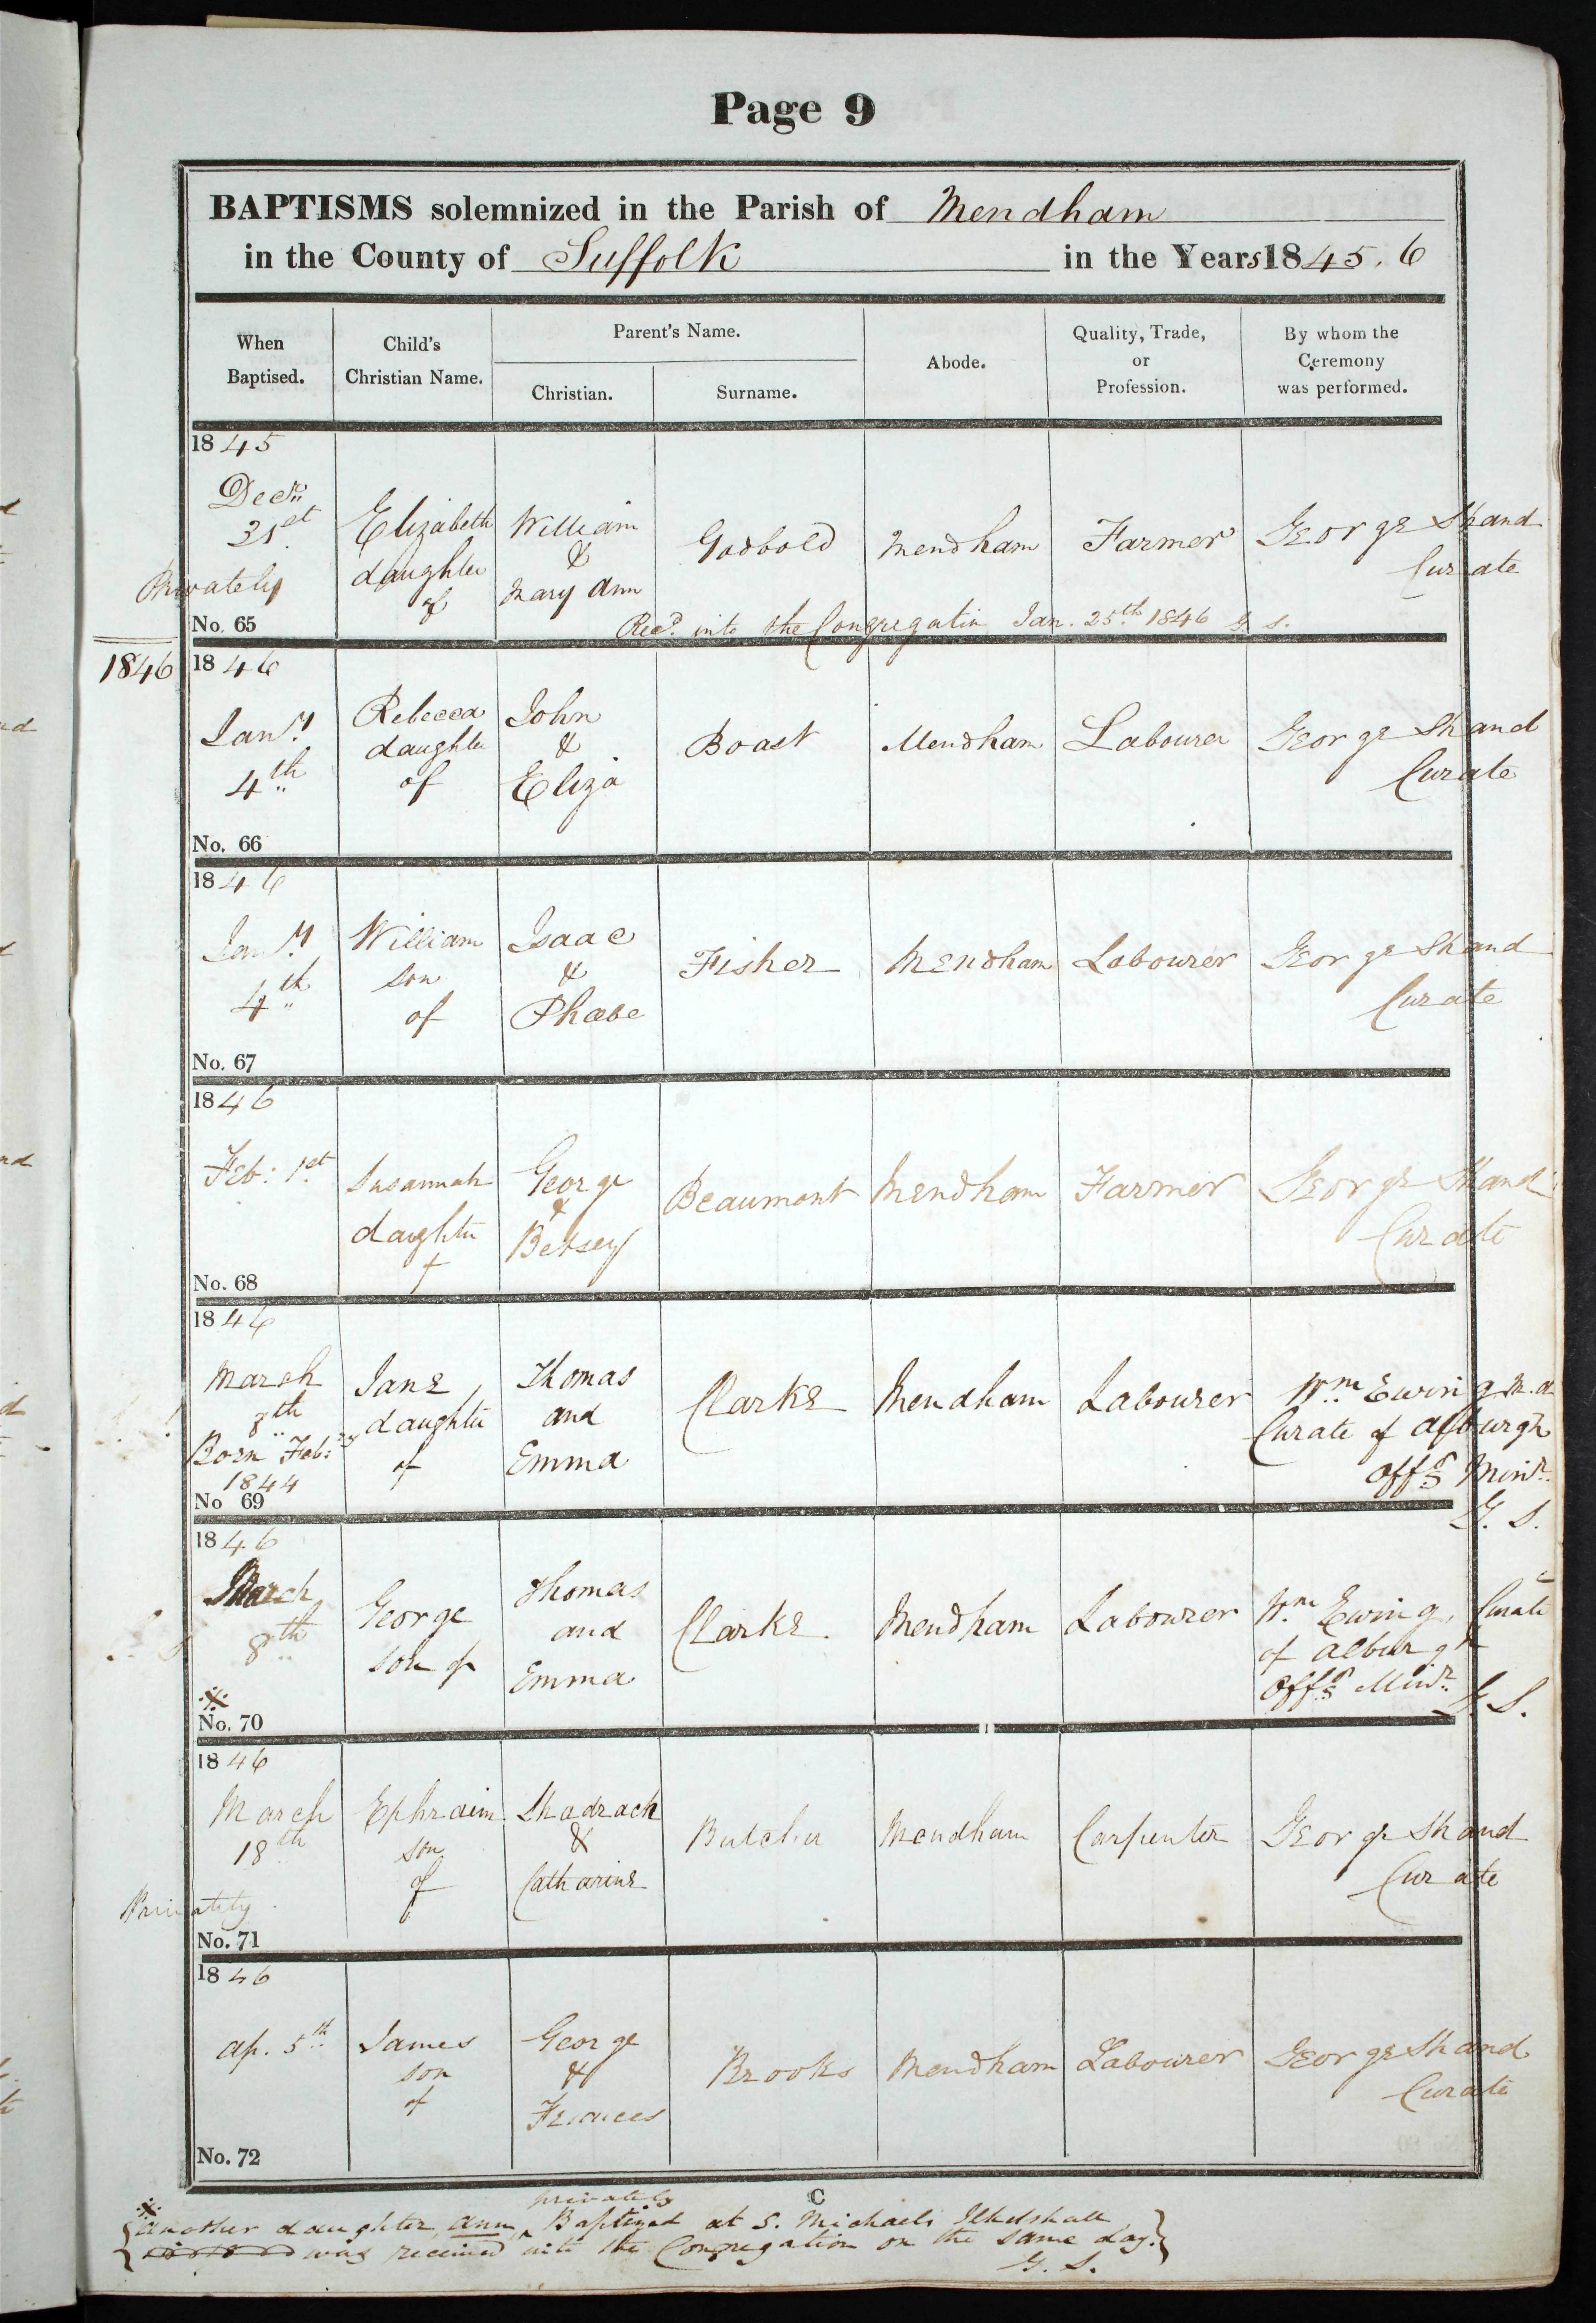 Page 9
BAPTISMS solemnized in the Parish of Mendham
in the County of Suffolk in the Years 1845.6
When Baptised.
Child's Christian Name.
Parent's Name.
Christian.
Surname.
Abode.
Quality, Trade, or Profession.
By whom the Ceremony was performed.
1845
Decr. 31st
Privately
No. 65
Elizabeth daughter of
William & Mary Ann
Godbold
Mendham
Farmer
George Shand Curate
Recd. into the Congregation Jan. 25th 1846 G. S.
1846
1846
Jany. 4th
No. 66
Rebecca daughter of
John & Eliza
Boast
Mendham
Labourer
George Shand Curate
1846
Jany. 4th
No. 67
William son of
Isaac & Phœbe
Fisher
Mendham
Labourer
George Shand Curate
1846
Feb: 1st
No. 68
Susannah daughter of
George & Betsey
Beaumont
Mendham
Farmer
George Shand Curate
1846
March 8th
Born Feb:
1844
No 69
Jane, daughter of
Thomas and Emma
Clarke
Mendham
Labourer
Wm. Ewing M.A
Curate of Alburgh
Offg Minr.
G. S.
1846
March 8th
※
No. 70
George son of
Thomas and Emma
Clarke.
Mendham
Labourer
Wm. Ewing, Curate
of Alburgh
Offg Minr.
G. S.
1846
March 18th
Privately
No. 71
Ephraim son of
Shadrach & Catharine
Butcher
Mendham
Carpenter
George Shand Curate
1846
Ap. 5th
No. 72
James son of
George & Frances
Brooks
Mendham
Labourer
George Shand Curate
C
privately
※ Another daughter, Ann, ‸ Baptized at S. Michaels Ilketshall
was received into the Congregation on the same day.
G. S.